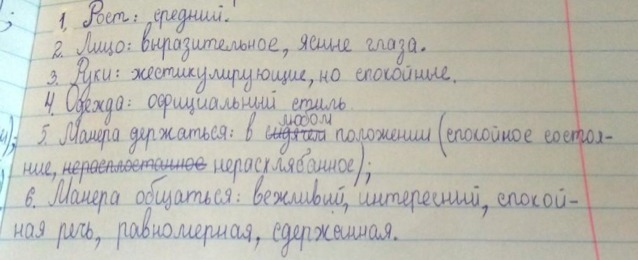 1. Рост: средний.
2. Лицо: выразительное, ясные глаза.
3. Руки: жестикулирующие, но спокойные.
4. Одежда: официальный стиль
любом
5. Манера держаться: в сидячем положении (спокойное состоя-
ние, нерасплостанное нерасклябанное);
6. Манера общаться: вежливий, интересний, спокой-
ная речь, равномерная, сдержанная.